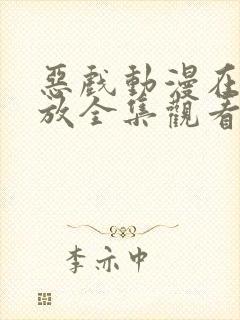 惡戲動漫在
放全集觀看
李亦中